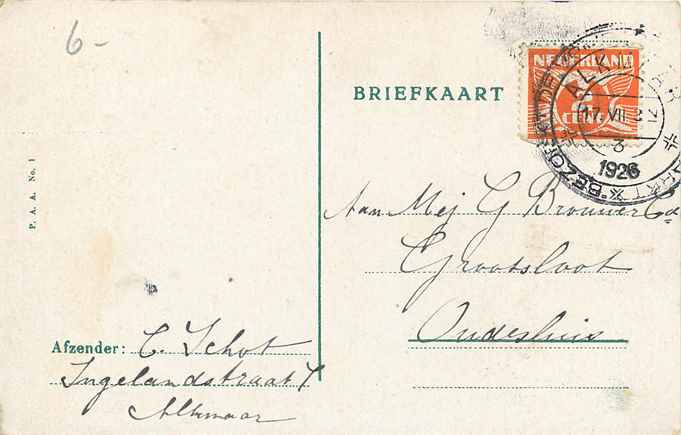 6-
BRIEFKAART
NEDERLAND
CENT
ALKMAAR
17.VII
3
1926
BEZOEKT DE
P. A. A. No. 1
Aan Mej G Brouwer Cd
Grootsloot
Oudesluis
Afzender: C. Schot
Ingelandstraat 7
Alkmaar